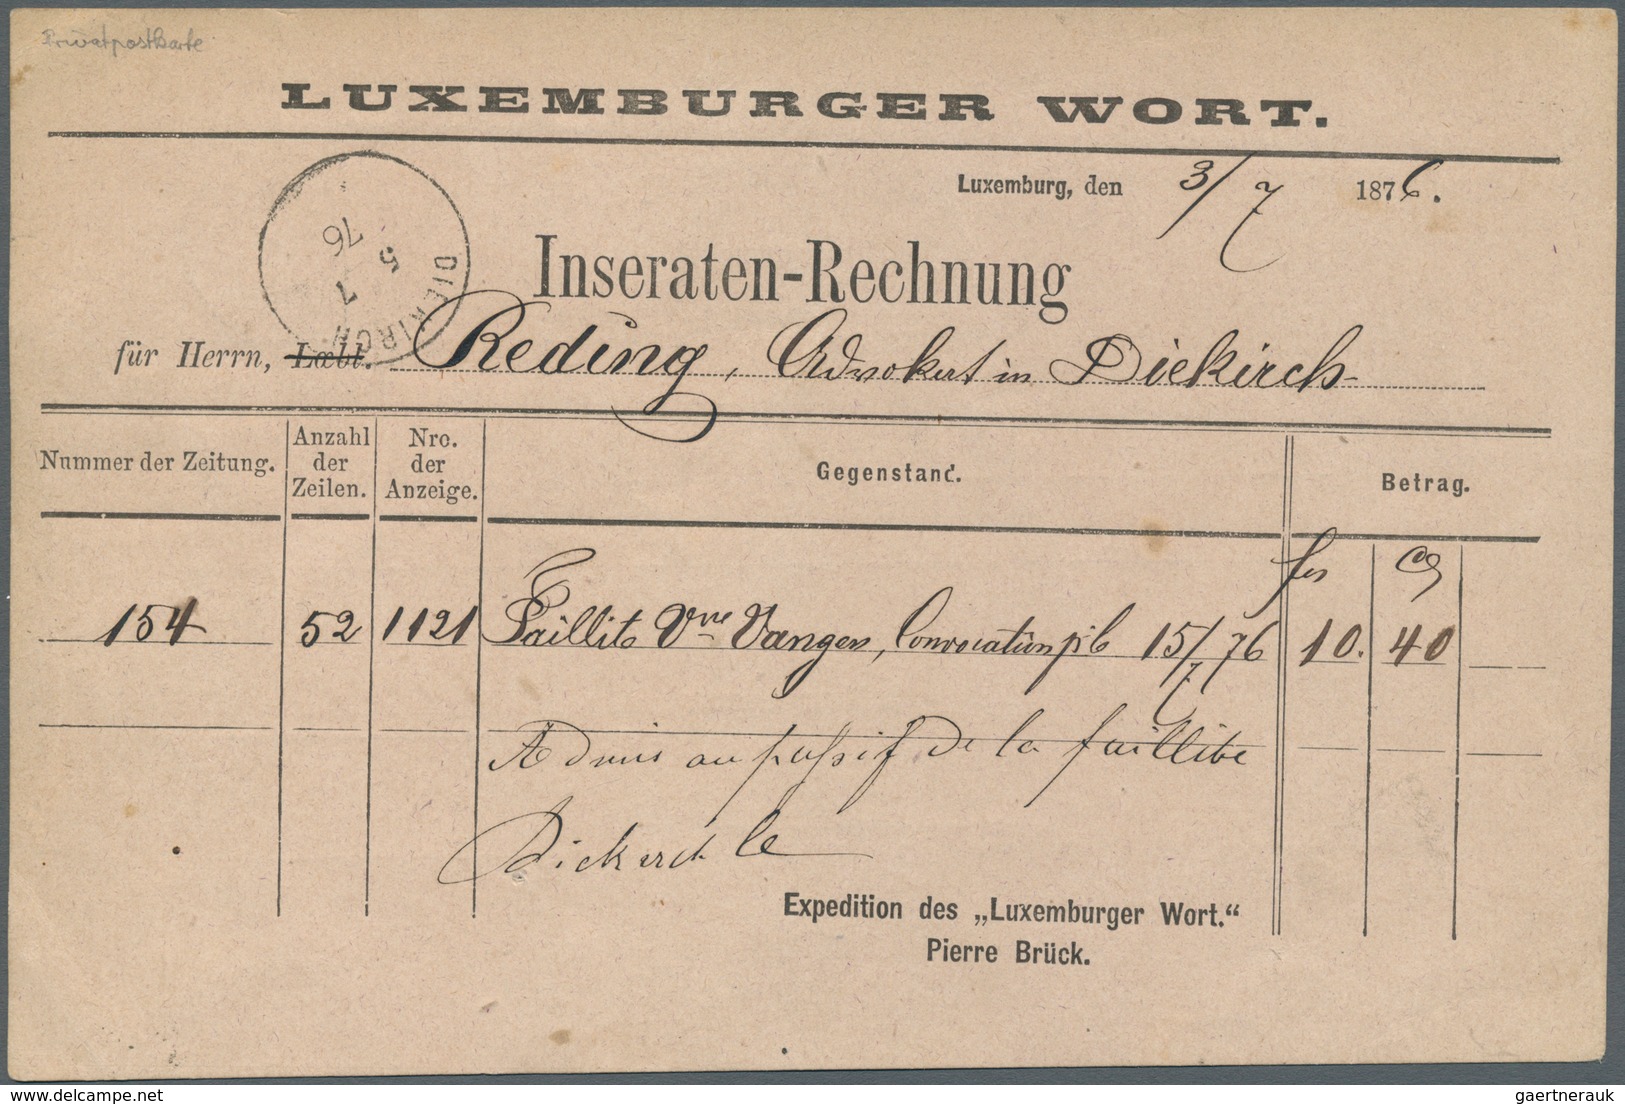 Privatpostkarte
LUXEMBURGER WORT.
Luxemburg, den 3/7 1876.
DIEKIRCH
5 7
76
Inseraten-Rechnung
für Herrn, Löbl. Reding, Advokat in Diekirch
Nummer der Zeitung.
Anzahl
der
Zeilen.
Nro.
der
Anzeige.
Gegenstand.
Betrag.
frs cs
154 52 1121 Faillite Vve Vangen, Convocation p. le 15/7 76 10. 40
Admis au passif de la faillite
Diekirch le
Expedition des „Luxemburger Wort.“
Pierre Brück.
delcampe.net
gaertnerauk